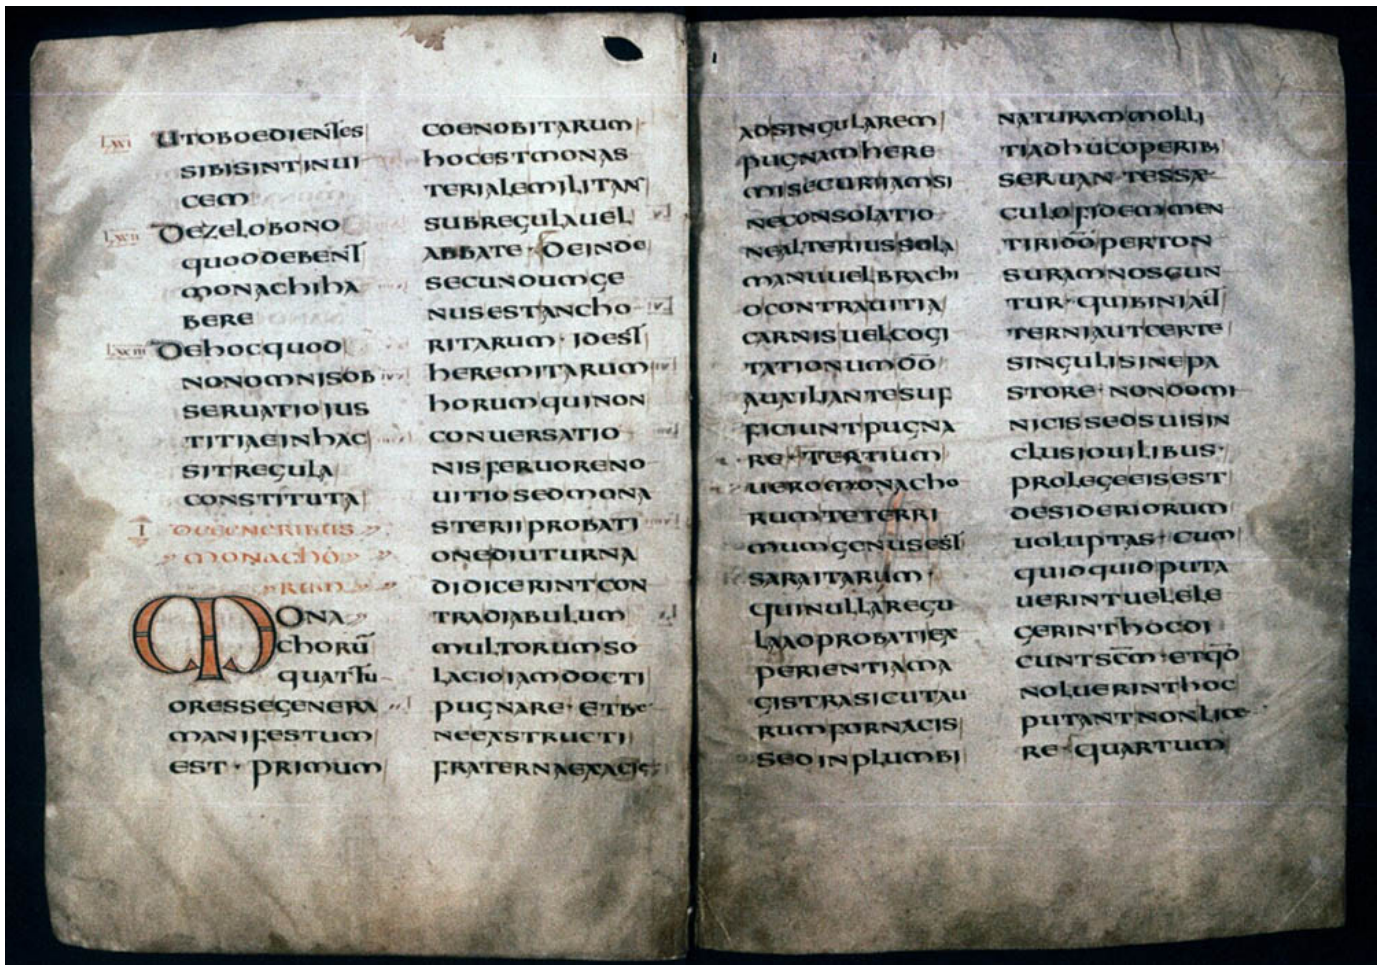 LXVI UTOBOEDIENTES
SIBISINTINUI
CEM
LXVII DEZELOBONO
QUODDEBENT
MONACHIHA
BERE
LXVIII DEHOCQUOD
NONOMNISOB
SERUATIOIUS
TITIAEINHAC
SITREGULA
CONSTITUTA
I DEGENERIBUS
MONACHO
RUM
MONA
CHORŪ
QUATTU
ORESSEGENERA
MANIFESTUM
EST · PRIMUM
COENOBITARUM
HOCESTMONAS
TERIALEMILITAN
SUBREGULAUEL
ABBATE · DEINDE
SECUNDUMGE
NUSESTANCHO
RITARUM · IDEST
HEREMITARUM
HORUMQUINON
CONUERSATIO
NISFERUORENO
UITIOSEDMONA
STERIIPROBATI
ONEDIUTURNA
DIDICERINTCON
TRADIABULUM
MULTORUMSO
LACIOIAMDOCTI
PUGNARE · ETBE
NEEXSTRUCTI
FRATERNAEXACIE
ADSINGULAREM
PUGNAMHERE
MISECURIIAMSI
NECONSOLATIO
NEALTERIUSSOLA
MANUUELBRACHI
OCONTRAUITIA
CARNISUELCOGI
TATIONUMDŌ
AUXILIANTESUF
FICIUNTPUGNA
RE · TERTIUM
UEROMONACHO
RUMTETERRI
MUMGENUSEST
SARAITARUM ·
QUINULLAREGU
LAADPROBATIEX
PERIENTIAMA
GISTRASICUTAU
RUMFORNACIS
SEDINPLUMBI
NATURAMMOLLI
TIADHUCOPERIB;
SERUANTESSAE
CULOFIDEMMEN
TIRIDŌPERTON
SURAMNOSCUN
TUR · QUIBINIAUT
TERNIAUTCERTE
SINGULISINEPA
STORE · NONDOMI
NICISSEDSUISIN
CLUSIOUILIBUS ·
PROLEGEEISEST
DESIDERIORUM
UOLUPTAS · CUM
QUIDQUIDPUTA
UERINTUELELE
GERINTHOCDI
CUNTSC̄M · ETQD̄
NOLUERINTHOC
PUTANTNONLICE
RE · QUARTUM